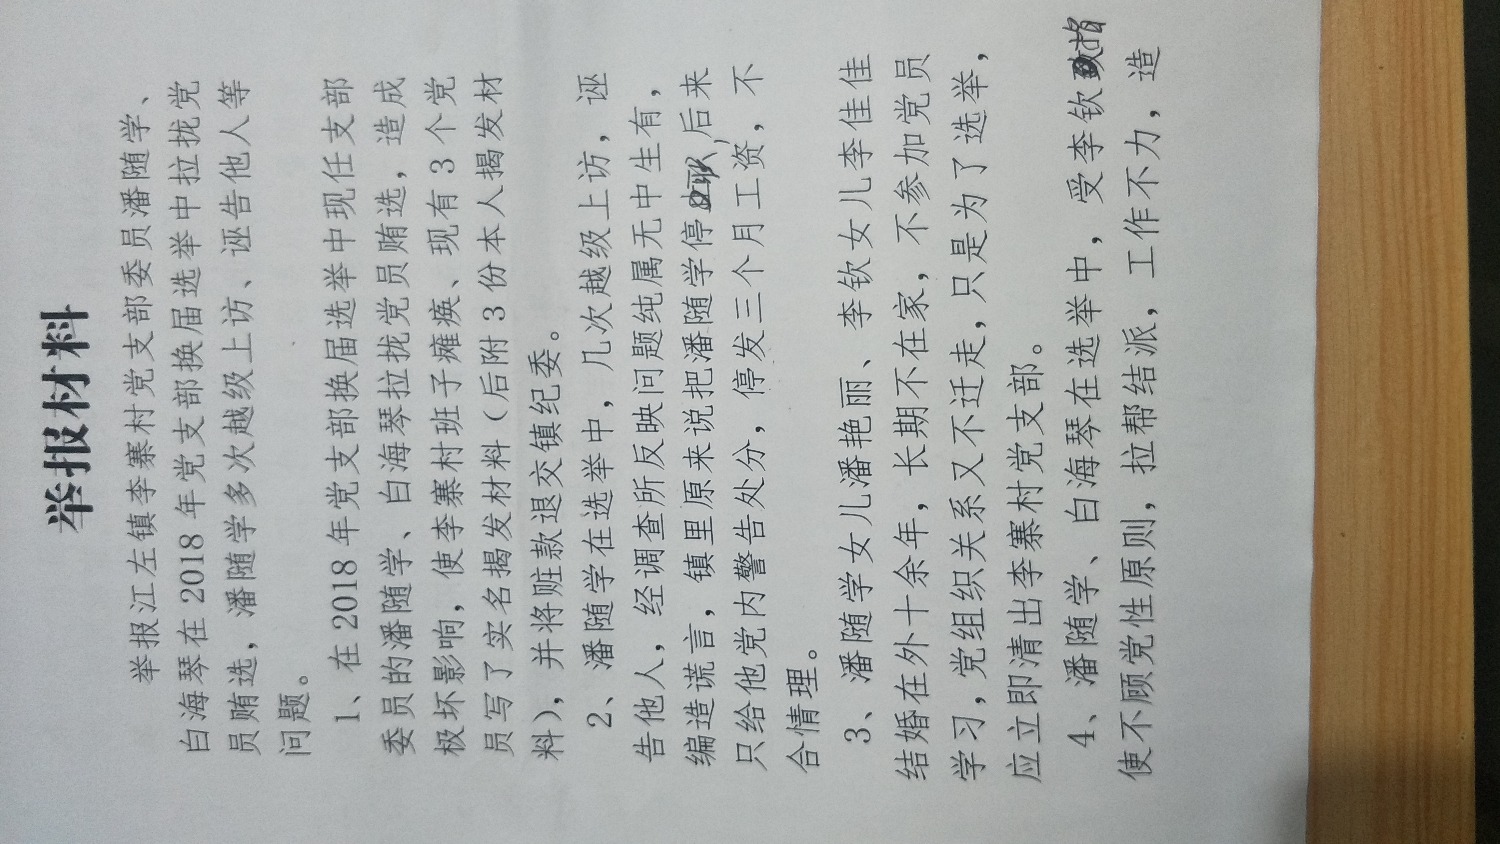 举报材料
举报江左镇李寨村党支部委员潘随学、
白海琴在 2018 年党支部换届选举中拉拢党
员贿选，潘随学多次越级上访、诬告他人等
问题。
1、在 2018 年党支部换届选举中现任支部
委员的潘随学、白海琴拉拢党员贿选，造成
极坏影响，使李寨村班子瘫痪、现有 3 个党
员写了实名揭发材料（后附 3 份本人揭发材
料），并将赃款退交镇纪委。
2、潘随学在选举中，几次越级上访，诬
告他人，经调查所反映问题纯属无中生有，
编造谎言，镇里原来说把潘随学停职，后来
只给他党内警告处分，停发三个月工资，不
合情理。
3、潘随学女儿潘艳丽、李钦女儿李佳佳
结婚在外十余年，长期不在家，不参加党员
学习，党组织关系又不迁走，只是为了选举，
应立即清出李寨村党支部。
4、潘随学、白海琴在选举中，受李钦指
使不顾党性原则，拉帮结派，工作不力，造